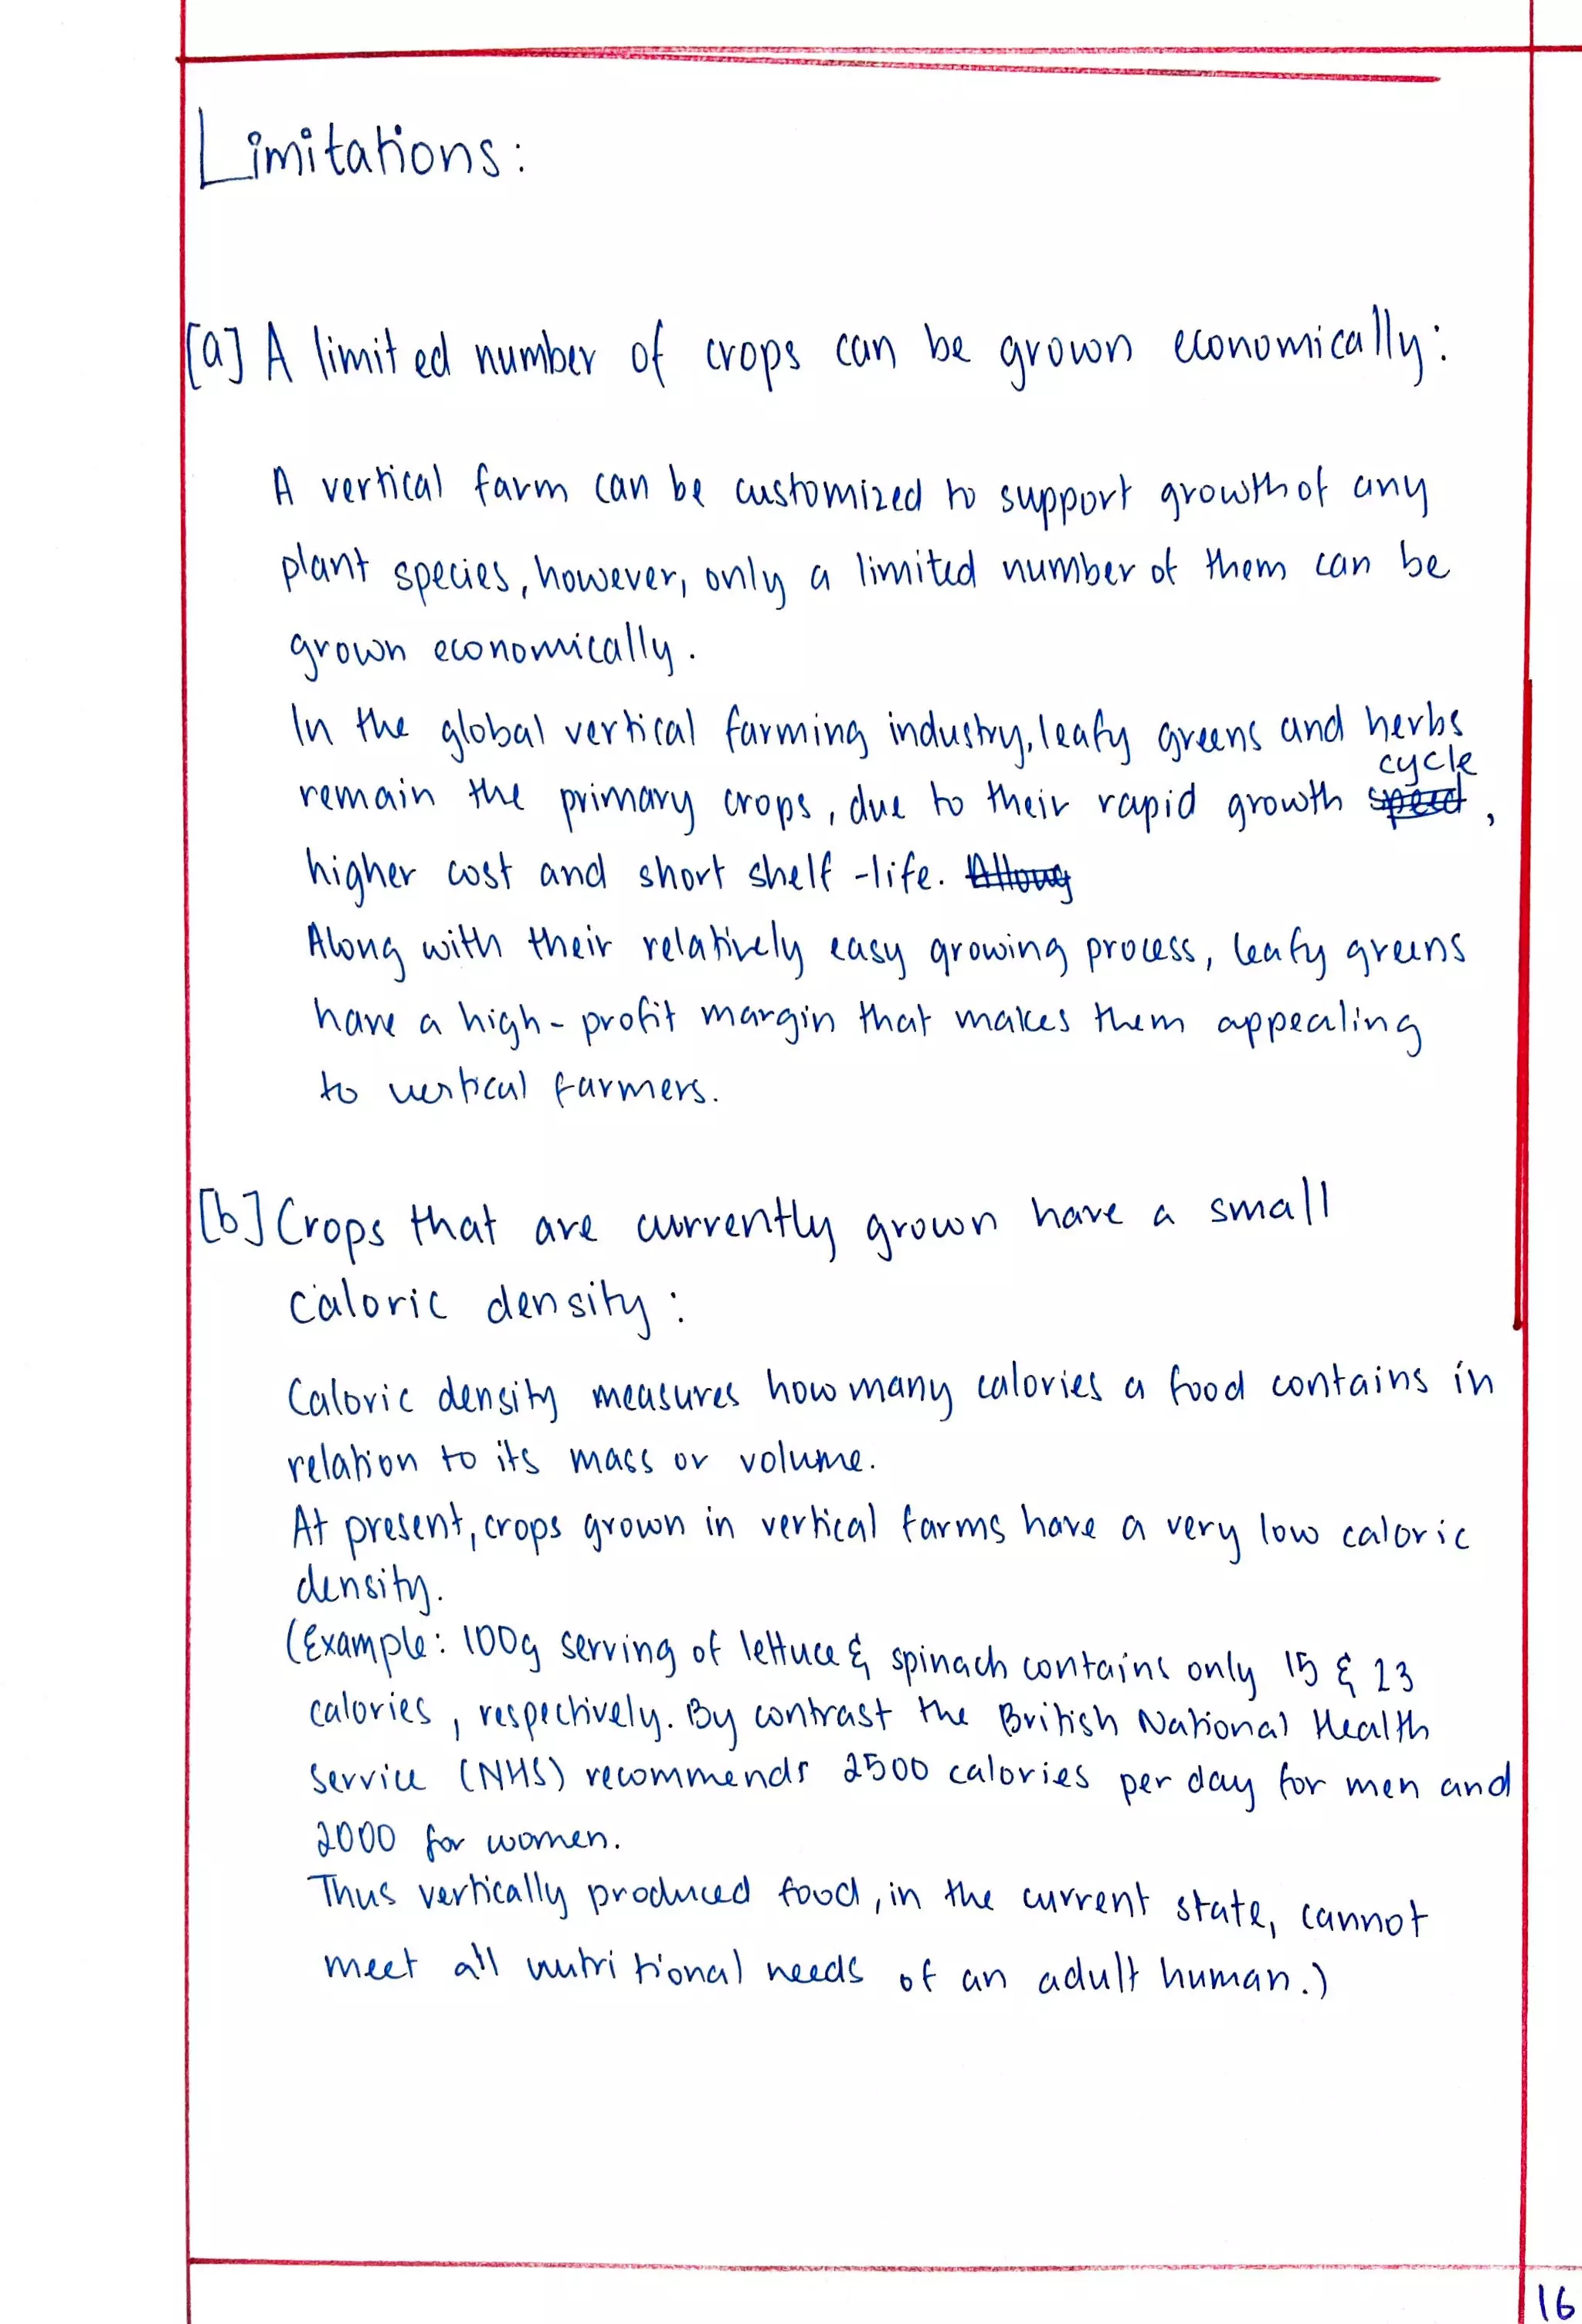 Limitations:
[a] A limited number of crops can be grown economically:
A vertical farm can be customized to support growth of any
plant species, however, only a limited number of them can be
grown economically.
In the global vertical farming industry, leafy greens and herbs
cycle
remain the primary crops, due to their rapid growth speed,
higher cost and short shelf-life. Alloug
Along with their relatively easy growing process, leafy greens
have a high-profit margin that makes them appealing
to vertical farmers.
[b] Crops that are currently grown have a small
caloric density:
Caloric density measures how many calories a food contains in
relation to its mass or volume.
At present, crops grown in vertical farms have a very low caloric
density.
(Example: 100g serving of lettuce & spinach contains only 15 & 23
calories, respectively. By contrast the British National Health
Service (NHS) recommends 2500 calories per day for men and
2000 for women.
Thus vertically produced food, in the current state, cannot
meet all nutritional needs of an adult human.)
16